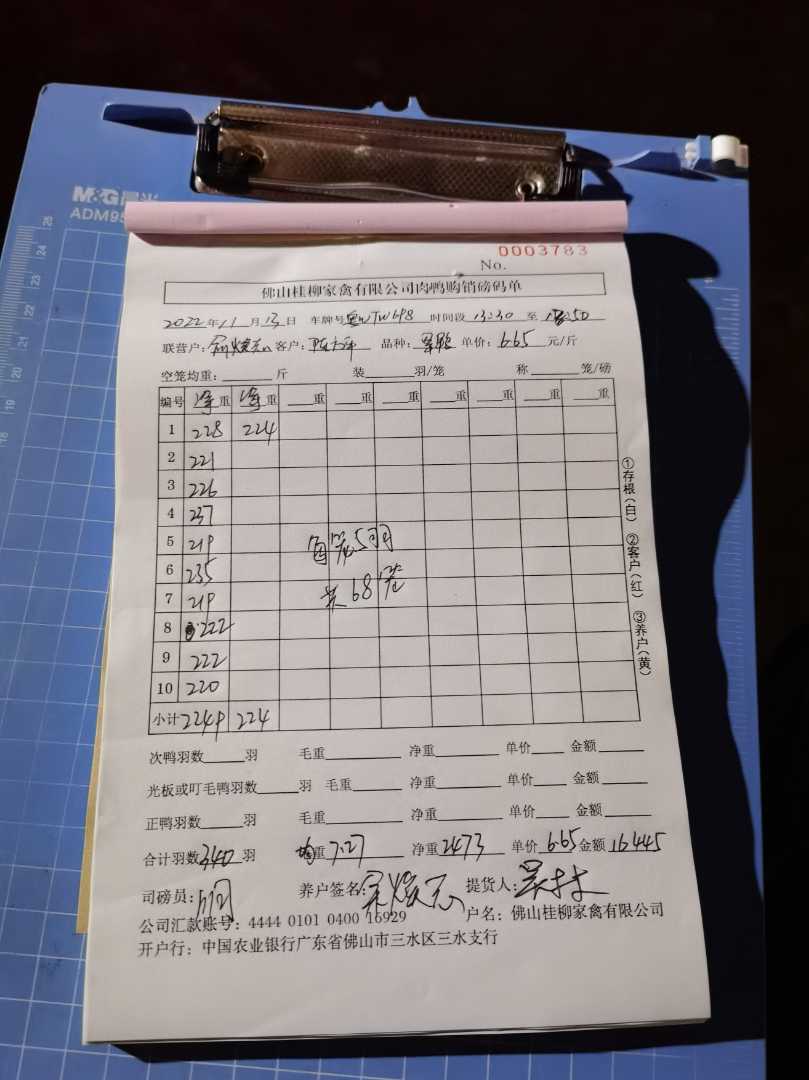 M&G 晨光
ADM95
0003783
No.
佛山桂柳家禽有限公司肉鸭购销磅码单
2022年11月13日 车牌号 粤WTW698 时间段 13:30 至 :50
联营户: 客户: 品种: 单价: 6.65 元/斤
空笼均重: 斤 装 羽/笼 称 笼/磅
编号 净重 净重 重 重 重 重 重 重 重
1 228 224
2 221
3 226
4 237
5 219
每笼5羽
6 235
共68笼
7 219
8 222
9 222
10 220
小计 2249 224
①存根(白) ②客户(红) ③养户(黄)
次鸭羽数 羽 毛重 净重 单价 金额
光板或叮毛鸭羽数 羽 毛重 净重 单价 金额
正鸭羽数 羽 毛重 净重 单价 金额
合计羽数 340 羽 均重 7.27 净重 2473 单价 6.65 金额 16445
司磅员: 养户签名: 提货人:
公司汇款账号: 4444 0101 0400 16929 户名: 佛山桂柳家禽有限公司
开户行: 中国农业银行广东省佛山市三水区三水支行